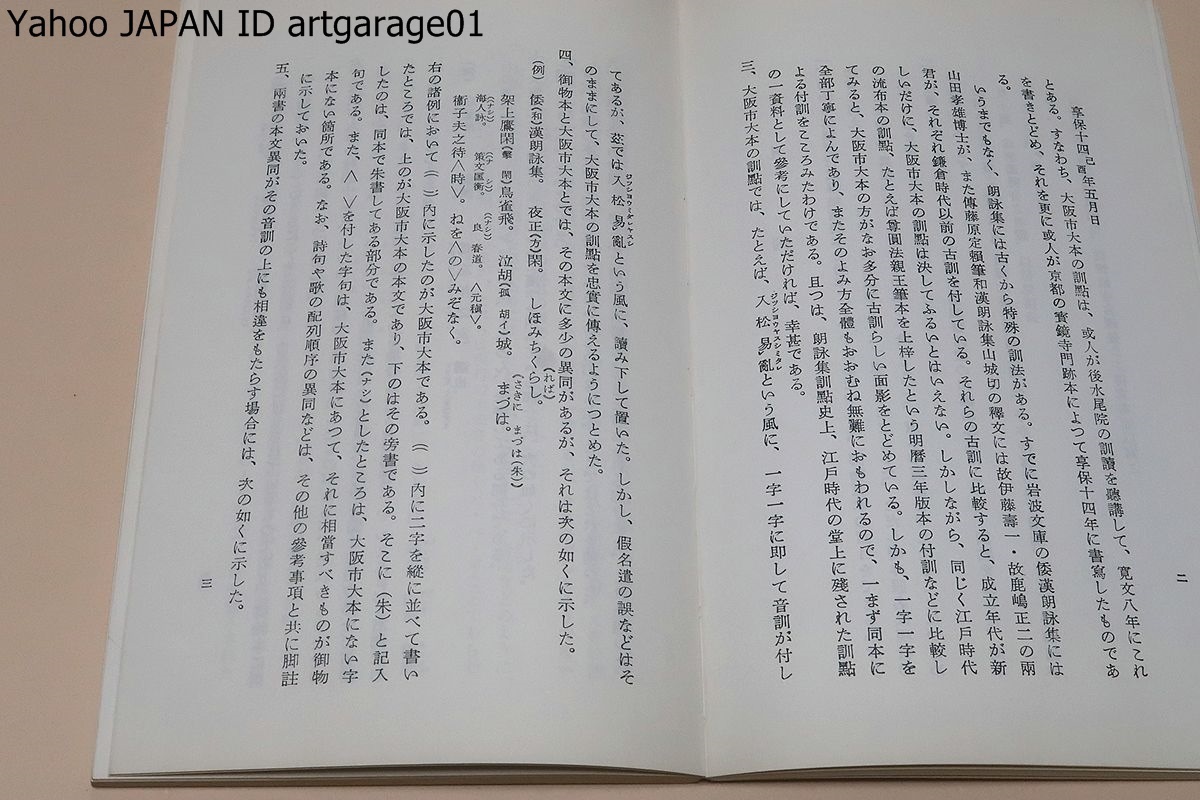 Yahoo JAPAN ID artgarage01
享保十四己酉年五月日
とある。すなわち、大阪市大本の訓點は、或人が後水尾院の訓讀を聽講して、寛文八年にこれ
を書きとどめ、それを更に或人が京都の寳鏡寺門跡本によつて享保十四年に書寫したものであ
る。
いうまでもなく、朗詠集には古くから特殊の訓法がある。すでに岩波文庫の倭漢朗詠集には
山田孝雄博士が、また傳藤原定頼筆和漢朗詠集山城切の釋文には故伊藤壽一・故鹿嶋正二の兩
君が、それぞれ鎌倉時代以前の古訓を付している。それらの古訓に比較すると、成立年代が新
しいだけに、大阪市大本の訓點は決してふるいとはいえない。しかしながら、同じく江戸時代
の流布本の訓點、たとえば尊圓法親王筆本を上梓したという明曆三年版本の付訓などに比較し
てみると、大阪市大本の方がなお多分に古訓らしい面影をとどめている。しかも、一字一字を
全部丁寧によんであり、またそのよみ方全體もおおむね無難におもわれるので、一まず同本に
よる付訓をこころみたわけである。且つは、朗詠集訓點史上、江戸時代の堂上に殘された訓點
の一資料として參考にしていただければ、幸甚である。
三、大阪市大本の訓點では、たとえば、入松易亂という風に、一字一字に即して音訓が付し
二
てあるが、玆では入松易亂という風に、讀み下して置いた。しかし、假名遣の誤などはそ
のままにして、大阪市大本の訓點を忠實に傳えるようにつとめた。
四、御物本と大阪市大本とでは、その本文に多少の異同があるが、それは次の如くに示した。
(例) 倭(和)漢朗詠集。 夜正(方)閑。 しほみちくらし。(れば)
架上鷹閑(繫 閑)鳥雀飛。 泣胡(孤 胡イ)城。 まつは。(さきに まづは(朱))
海人詠。(ナシ) 策文匡衡。(ナシ) 良春道。(ナシ) 〈元稹〉。
衞子夫之待〈時〉。 ねを〈の〉みぞなく。
右の諸例において( )内に示したのが大阪市大本である。( )内に二字を縱に並べて書い
たところでは、上のが大阪市大本の本文であり、下のはその旁書である。そこに(朱)と記入
したのは、同本で朱書してある部分である。また(ナシ)としたところは、大阪市大本にない字
句である。また、〈 〉を付した字句は、大阪市大本にあつて、それに相當すべきものが御物
本にない箇所である。なお、詩句や歌の配列順序の異同などは、その他の參考事項と共に脚註
に示しておいた。
五、兩書の本文異同がその音訓の上にも相違をもたらす場合には、次の如くに示した。
三